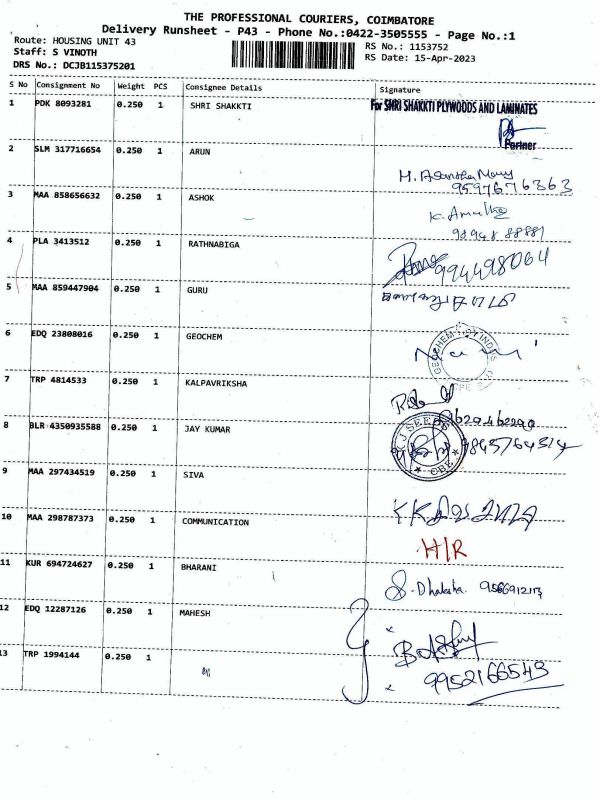 THE PROFESSIONAL COURIERS, COIMBATORE
Delivery Runsheet - P43 - Phone No.:0422-3505555 - Page No.:1
Route: HOUSING UNIT 43
Staff: S VINOTH
DRS No.: DCJB115375201
RS No.: 1153752
RS Date: 15-Apr-2023
S No Consignment No Weight PCS Consignee Details Signature
1 PDK 8093281 0.250 1 SHRI SHAKKTI For SHRI SHAKKTI PLYWOODS AND LAMINATES
Partner
2 SLM 317716654 0.250 1 ARUN
9597676363
3 MAA 858656632 0.250 1 ASHOK
98948 88881
4 PLA 3413512 0.250 1 RATHNABIGA
994498064
5 MAA 859447904 0.250 1 GURU
6 EDQ 23808016 0.250 1 GEOCHEM
GEOCHEM
7 TRP 4814533 0.250 1 KALPAVRIKSHA
8 BLR 4350935588 0.250 1 JAY KUMAR
9 MAA 297434519 0.250 1 SIVA
10 MAA 298787373 0.250 1 COMMUNICATION
H/R
11 KUR 694724627 0.250 1 BHARANI
12 EDQ 12287126 0.250 1 MAHESH
13 TRP 1994144 0.250 1
9952166543